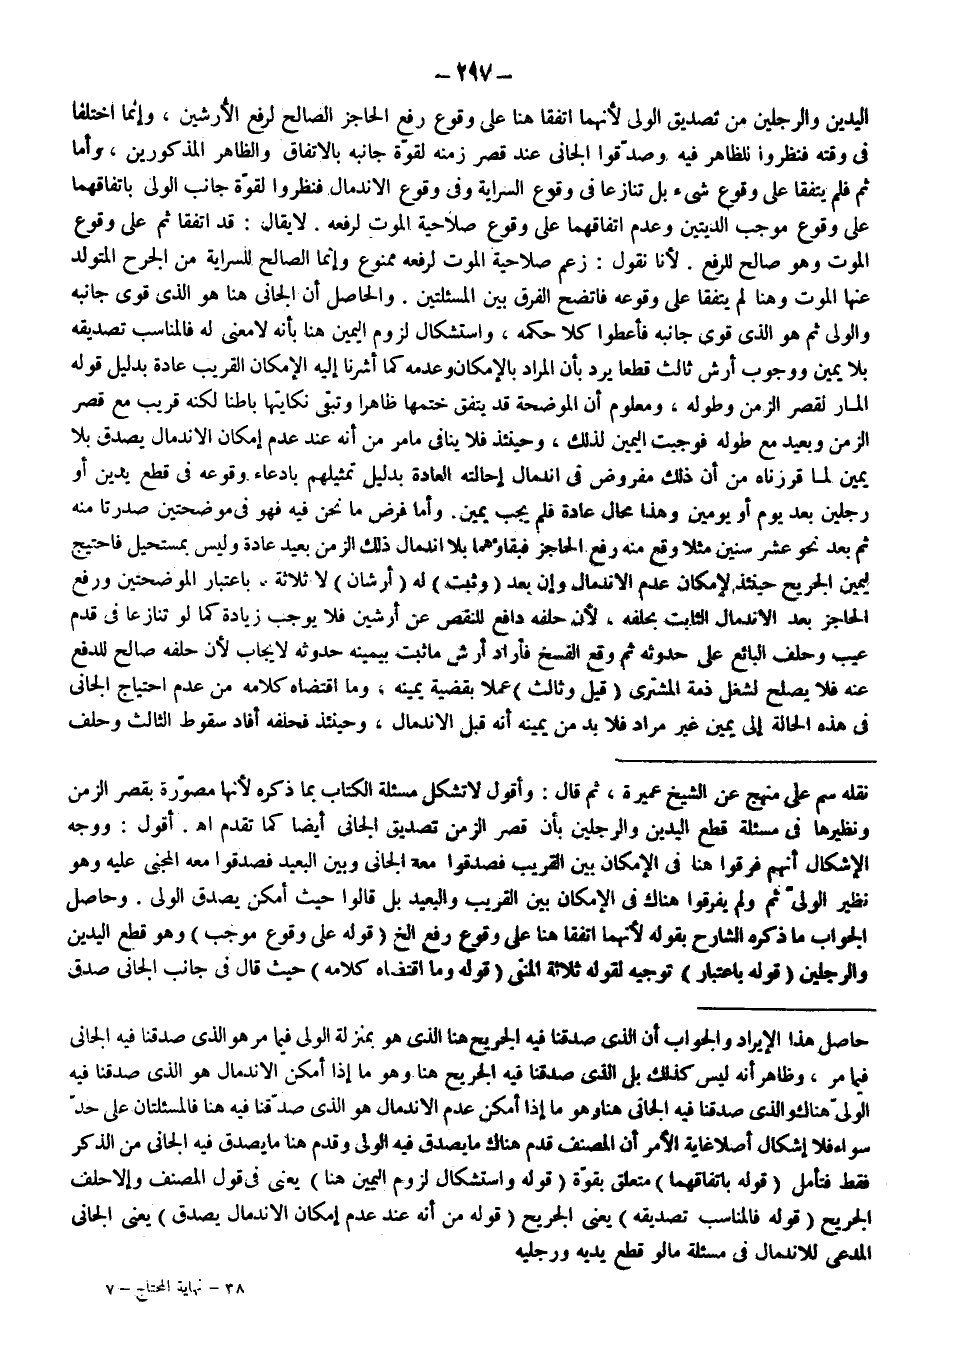 – ٢٩٧ –
اليدين والرجلين من تصديق الولى لأنهما اتفقا هنا على وقوع رفع الحاجز الصالح لرفع الأرشين ، وإنما اختلفا
فى وقته فنظروا للظاهر فيه وصدّقوا الجانى عند قصر زمنه لقوّة جانبه بالاتفاق والظاهر المذكورين ، وأما
ثم فلم يتفقا على وقوع شىء بل تنازعا فى وقوع السراية وفى وقوع الاندمال فنظروا لقوّة جانب الولى باتفاقهما
على وقوع موجب الديتين وعدم اتفاقهما على وقوع صلاحية الموت لرفعه . لايقال : قد اتفقا ثم على وقوع
الموت وهو صالح للرفع . لأنا نقول : زعم صلاحية الموت لرفعه ممنوع وإنما الصالح للسراية من الجرح المتولد
عنها الموت وهنا لم يتفقا على وقوعه فاتضح الفرق بين المسئلتين . والحاصل أن الجانى هنا هو الذى قوى جانبه
والولى ثم هو الذى قوى جانبه فأعطوا كلا حكمه ، واستشكال لزوم اليمين هنا بأنه لامعنى له فالمناسب تصديقه
بلا يمين ووجوب أرش ثالث قطعا يرد بأن المراد بالإمكان وعدمه كما أشرنا إليه الإمكان القريب عادة بدليل قوله
المـار لقصر الزمن وطوله ، ومعلوم أن الموضحة قد يتفق ختمها ظاهرا وتبقى نكايتها باطنا لكنه قريب مع قصر
الزمن وبعيد مع طوله فوجبت اليمين لذلك ، وحينئذ فلا ينافى مامر من أنه عند عدم إمكان الاندمال يصدق بلا
يمين لمـا قررناه من أن ذلك مفروض فى اندمال إحالته العادة بدليل تمثيلهم بادعاء وقوعه فى قطع يدين أو
رجلين بعد يوم أو يومين وهذا محال عادة فلم يجب يمين . وأما فرض ما نحن فيه فهو فى موضحتين صدرتا منه
ثم بعد نحو عشر سنين مثلا وقع منه رفع الحاجز فبقاؤهما بلا اندمال ذلك الزمن بعيد عادة وليس بمستحيل فاحتيج
ليمين الجريح حينئذ لإمكان عدم الاندمال وإن بعد ( وثبت ) له ( أرشان ) لا ثلاثة . باعتبار الموضحتين ورفع
الحاجز بعد الاندمال الثابت بحلفه ، لأن حلفه دافع للنقص عن أرشين فلا يوجب زيادة كما لو تنازعا فى قدم
عيب وحلف البائع على حدوثه ثم وقع الفسخ فأراد أرش ماثبت بيمينه حدوثه لايجاب لأن حلفه صالح للدفع
عنه فلا يصلح لشغل ذمة المشترى ( قيل وثالث ) عملا بقضية يمينه ، وما اقتضاه كلامه من عدم احتياج الجانى
فى هذه الحالة إلى يمين غير مراد فلا بد من يمينه أنه قبل الاندمال ، وحينئذ فحلفه أفاد سقوط الثالث وحلف
نقله سم على منهج عن الشيخ عميرة ، ثم قال : وأقول لاتشكل مسئلة الكتاب بما ذكره لأنها مصوّرة بقصر الزمن
ونظيرها فى مسئلة قطع اليدين والرجلين بأن قصر الزمن تصديق الجانى أيضا كما تقدم اه . أقول : ووجه
الإشكال أنهم فرقوا هنا فى الإمكان بين القريب فصدقوا معه الجانى وبين البعيد فصدقوا معه المجنى عليه وهو
نظير الولىّ ثم ولم يفرقوا هناك فى الإمكان بين القريب والبعيد بل قالوا حيث أمكن يصدق الولى . وحاصل
الجواب ما ذكره الشارح بقوله لأنهما اتفقا هنا على وقوع رفع الخ ( قوله على وقوع موجب ) وهو قطع اليدين
والرجلين ( قوله باعتبار ) توجيه لقوله ثلاثة المنفى ( قوله وما اقتضاه كلامه ) حيث قال فى جانب الجانى صدق
حاصل هذا الإيراد والجواب أن الذى صدقنا فيه الجريح هنا الذى هو بمنزلة الولى فيما مر هو الذى صدقنا فيه الجانى
فيما مر ، وظاهر أنه ليس كذلك بل الذى صدقنا فيه الجريح هنا وهو ما إذا أمكن الاندمال هو الذى صدقنا فيه
الولىّ هناك والذى صدقنا فيه الجانى هنا وهو ما إذا أمكن عدم الاندمال هو الذى صدّقنا فيه هنا فالمسئلتان على حدّ
سواء فلا إشكال أصلا غاية الأمر أن المصنف قدم هناك مايصدق فيه الولى وقدم هنا مايصدق فيه الجانى من الذكر
فقط فتأمل ( قوله باتفاقهما ) متعلق بقوّة ( قوله واستشكال لزوم اليمين هنا ) يعنى فى قول المصنف وإلا حلف
الجريح ( قوله فالمناسب تصديقه ) يعنى الجريح ( قوله من أنه عند عدم إمكان الاندمال يصدق ) يعنى الجانى
المدعى للاندمال فى مسئلة مالو قطع يديه ورجليه
٣٨ – نهاية المحتاج – ٧